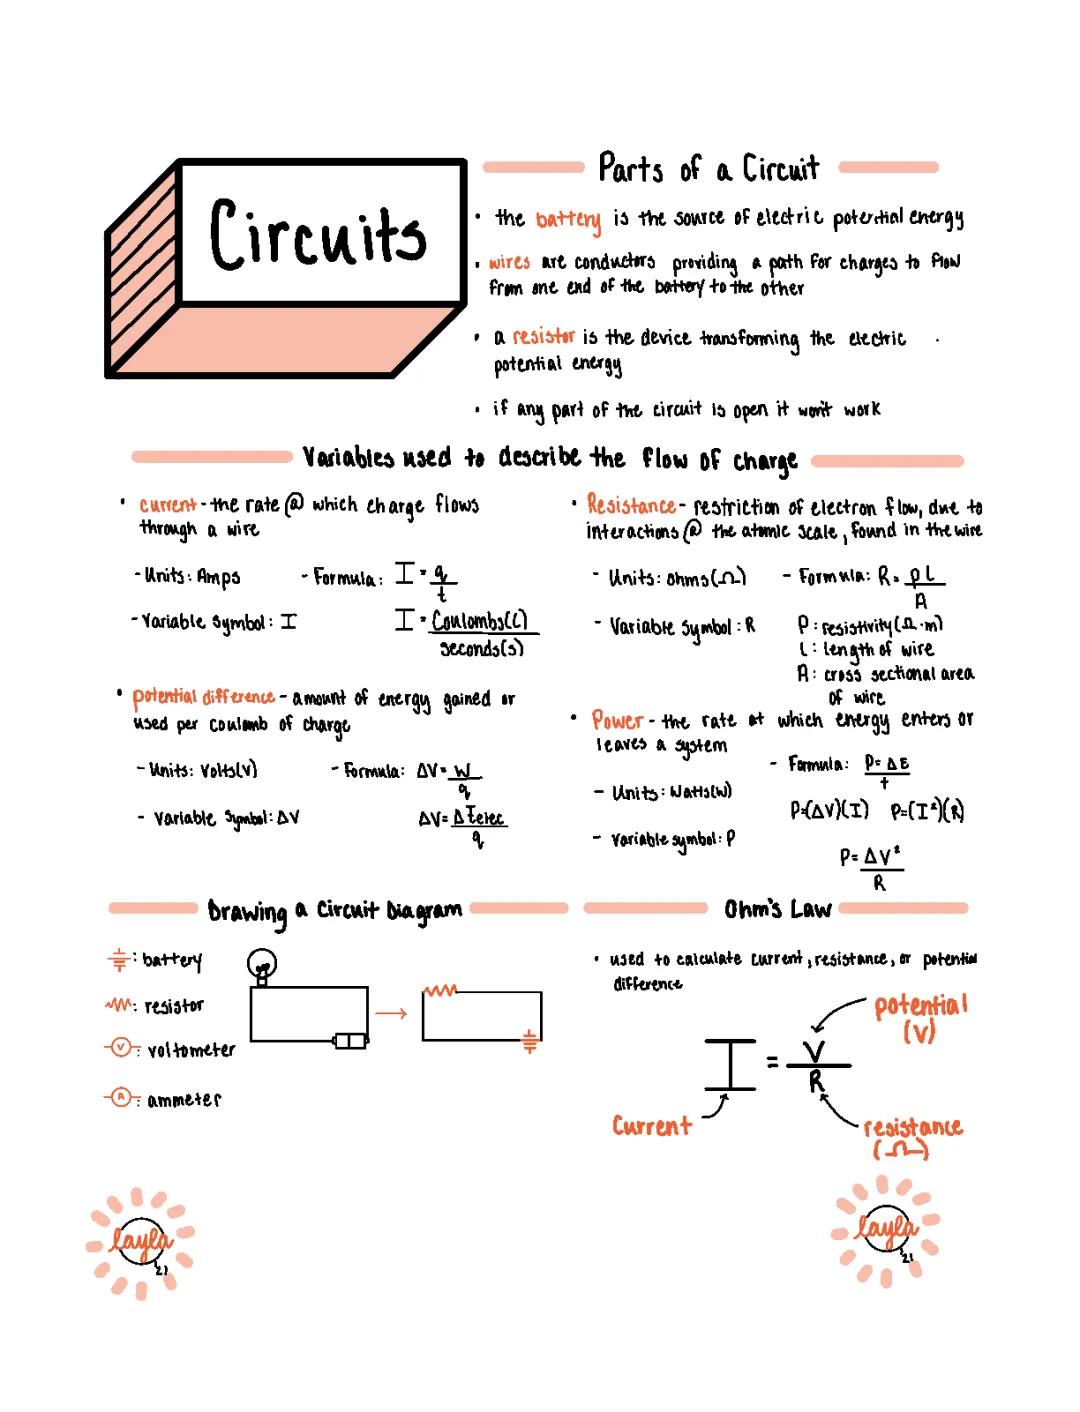 Circuits
Parts of a Circuit
• the battery is the source of electric potential energy
• wires are conductors providing a path for charges to flow
from one end of the battery to the other
• a resistor is the device transforming the electric
potential energy
• if any part of the circuit is open it won't work
Variables used to describe the flow of charge
• current - the rate @ which charge flows
through a wire
- Units: Amps
- Formula: I = q
t
- Variable Symbol: I
I = Coulombs(C)
seconds(s)
• potential difference - amount of energy gained or
used per coulomb of charge
- Units: Volts(V)
- Formula: ΔV = W
q
- Variable Symbol: ΔV
ΔV = ΔEelec
q
• Resistance - restriction of electron flow, due to
interactions @ the atomic scale, found in the wire
- Units: ohms(Ω)
- Formula: R = ρL
A
- Variable Symbol: R
ρ: resistivity(Ω·m)
L: length of wire
A: cross sectional area
of wire
• Power - the rate at which energy enters or
leaves a system
- Formula: P = ΔE
t
- Units: Watts(W)
P=(ΔV)(I) P=(I²)(R)
- Variable symbol: P
P = ΔV²
R
Drawing a Circuit Diagram
: battery
: resistor
V : voltometer
A : ammeter
Ohm's Law
• used to calculate current, resistance, or potential
difference
potential
(V)
I = V
R
Current
resistance
(Ω)
layla
21
layla
21